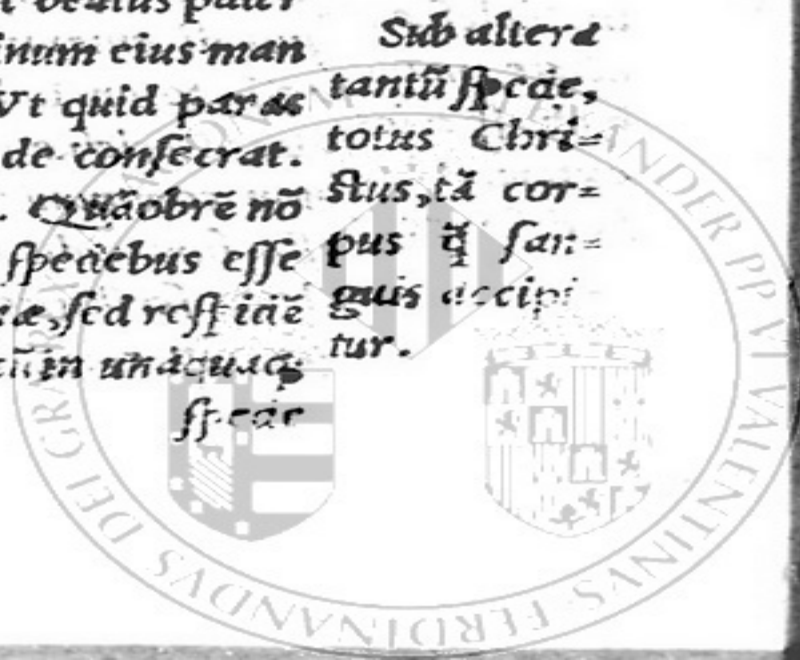 inum eius man
Vt quid paras
de consecrat.
Quāobrē nō
ſpeciebus eſſe
ſed reſpiciē
in unaquaq;
ſpecie
Sub altera
tantū ſpecie,
totus Chri=
ſtus, tā cor=
pus q̄ ſan=
guis accipi
tur.
ALEXANDER PP VI VALENTINVS FERDINANDVS DEI GRA REX